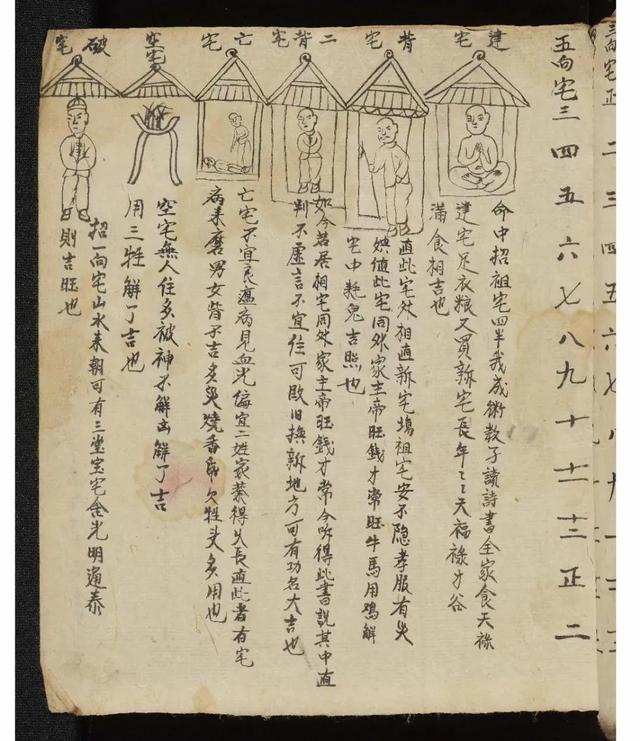 三向宅正二三四五六七八九十
五向宅三四五六七八九十十一十二正二
建宅
背宅
二背宅
亡宅
空宅
破宅
命中招祖宅四半我成術教子讀詩書全家食天祿
建宅足衣粮又買新宅長年天福祿才谷
滿食相吉也
直此宅外相適新宅塲祖宅安不隐孝服有災
殃值此宅同外家主帝旺錢才常旺牛馬用鸡解
宅中耗鬼吉照也
如今若居相宅同外家主帝旺錢才常今所得此書説其中直
判不虛言不宜住可改旧换新地方可有功名大吉也
亡宅不宜良瘟病見血光偏宜二姓家業得久長直此者有宅
病来磨男女背不吉多災燒香帛欠牲头多用也
空宅無人住多被神不解凶解了吉
用三牲解了吉也
招一向宅山水来朝可有三堂宝宅舍光明通泰
則吉旺也